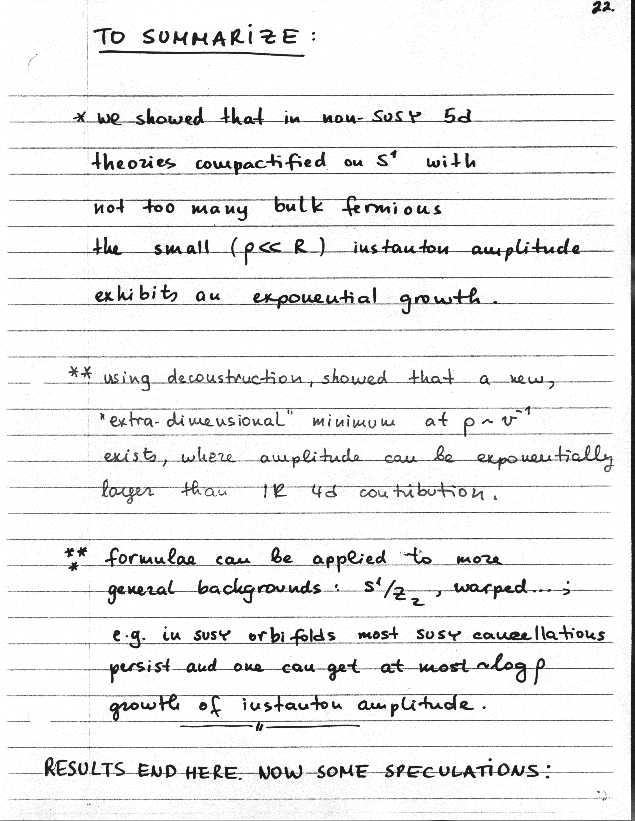 22.
TO SUMMARIZE :
* we showed that in non-SUSY 5d
theories compactified on S¹ with
not too many bulk fermions
the small (ρ<< R) instanton amplitude
exhibits an exponential growth.
** using deconstruction, showed that a new,
"extra-dimensional" minimum at ρ ~ v⁻¹
exists, where amplitude can be exponentially
larger than IR 4d contribution.
*** formulae can be applied to more
general backgrounds : S¹/Z₂, warped... ;
e.g. in SUSY orbifolds most SUSY cancellations
persist and one can get at most ~log ρ
growth of instanton amplitude.
RESULTS END HERE. NOW SOME SPECULATIONS: